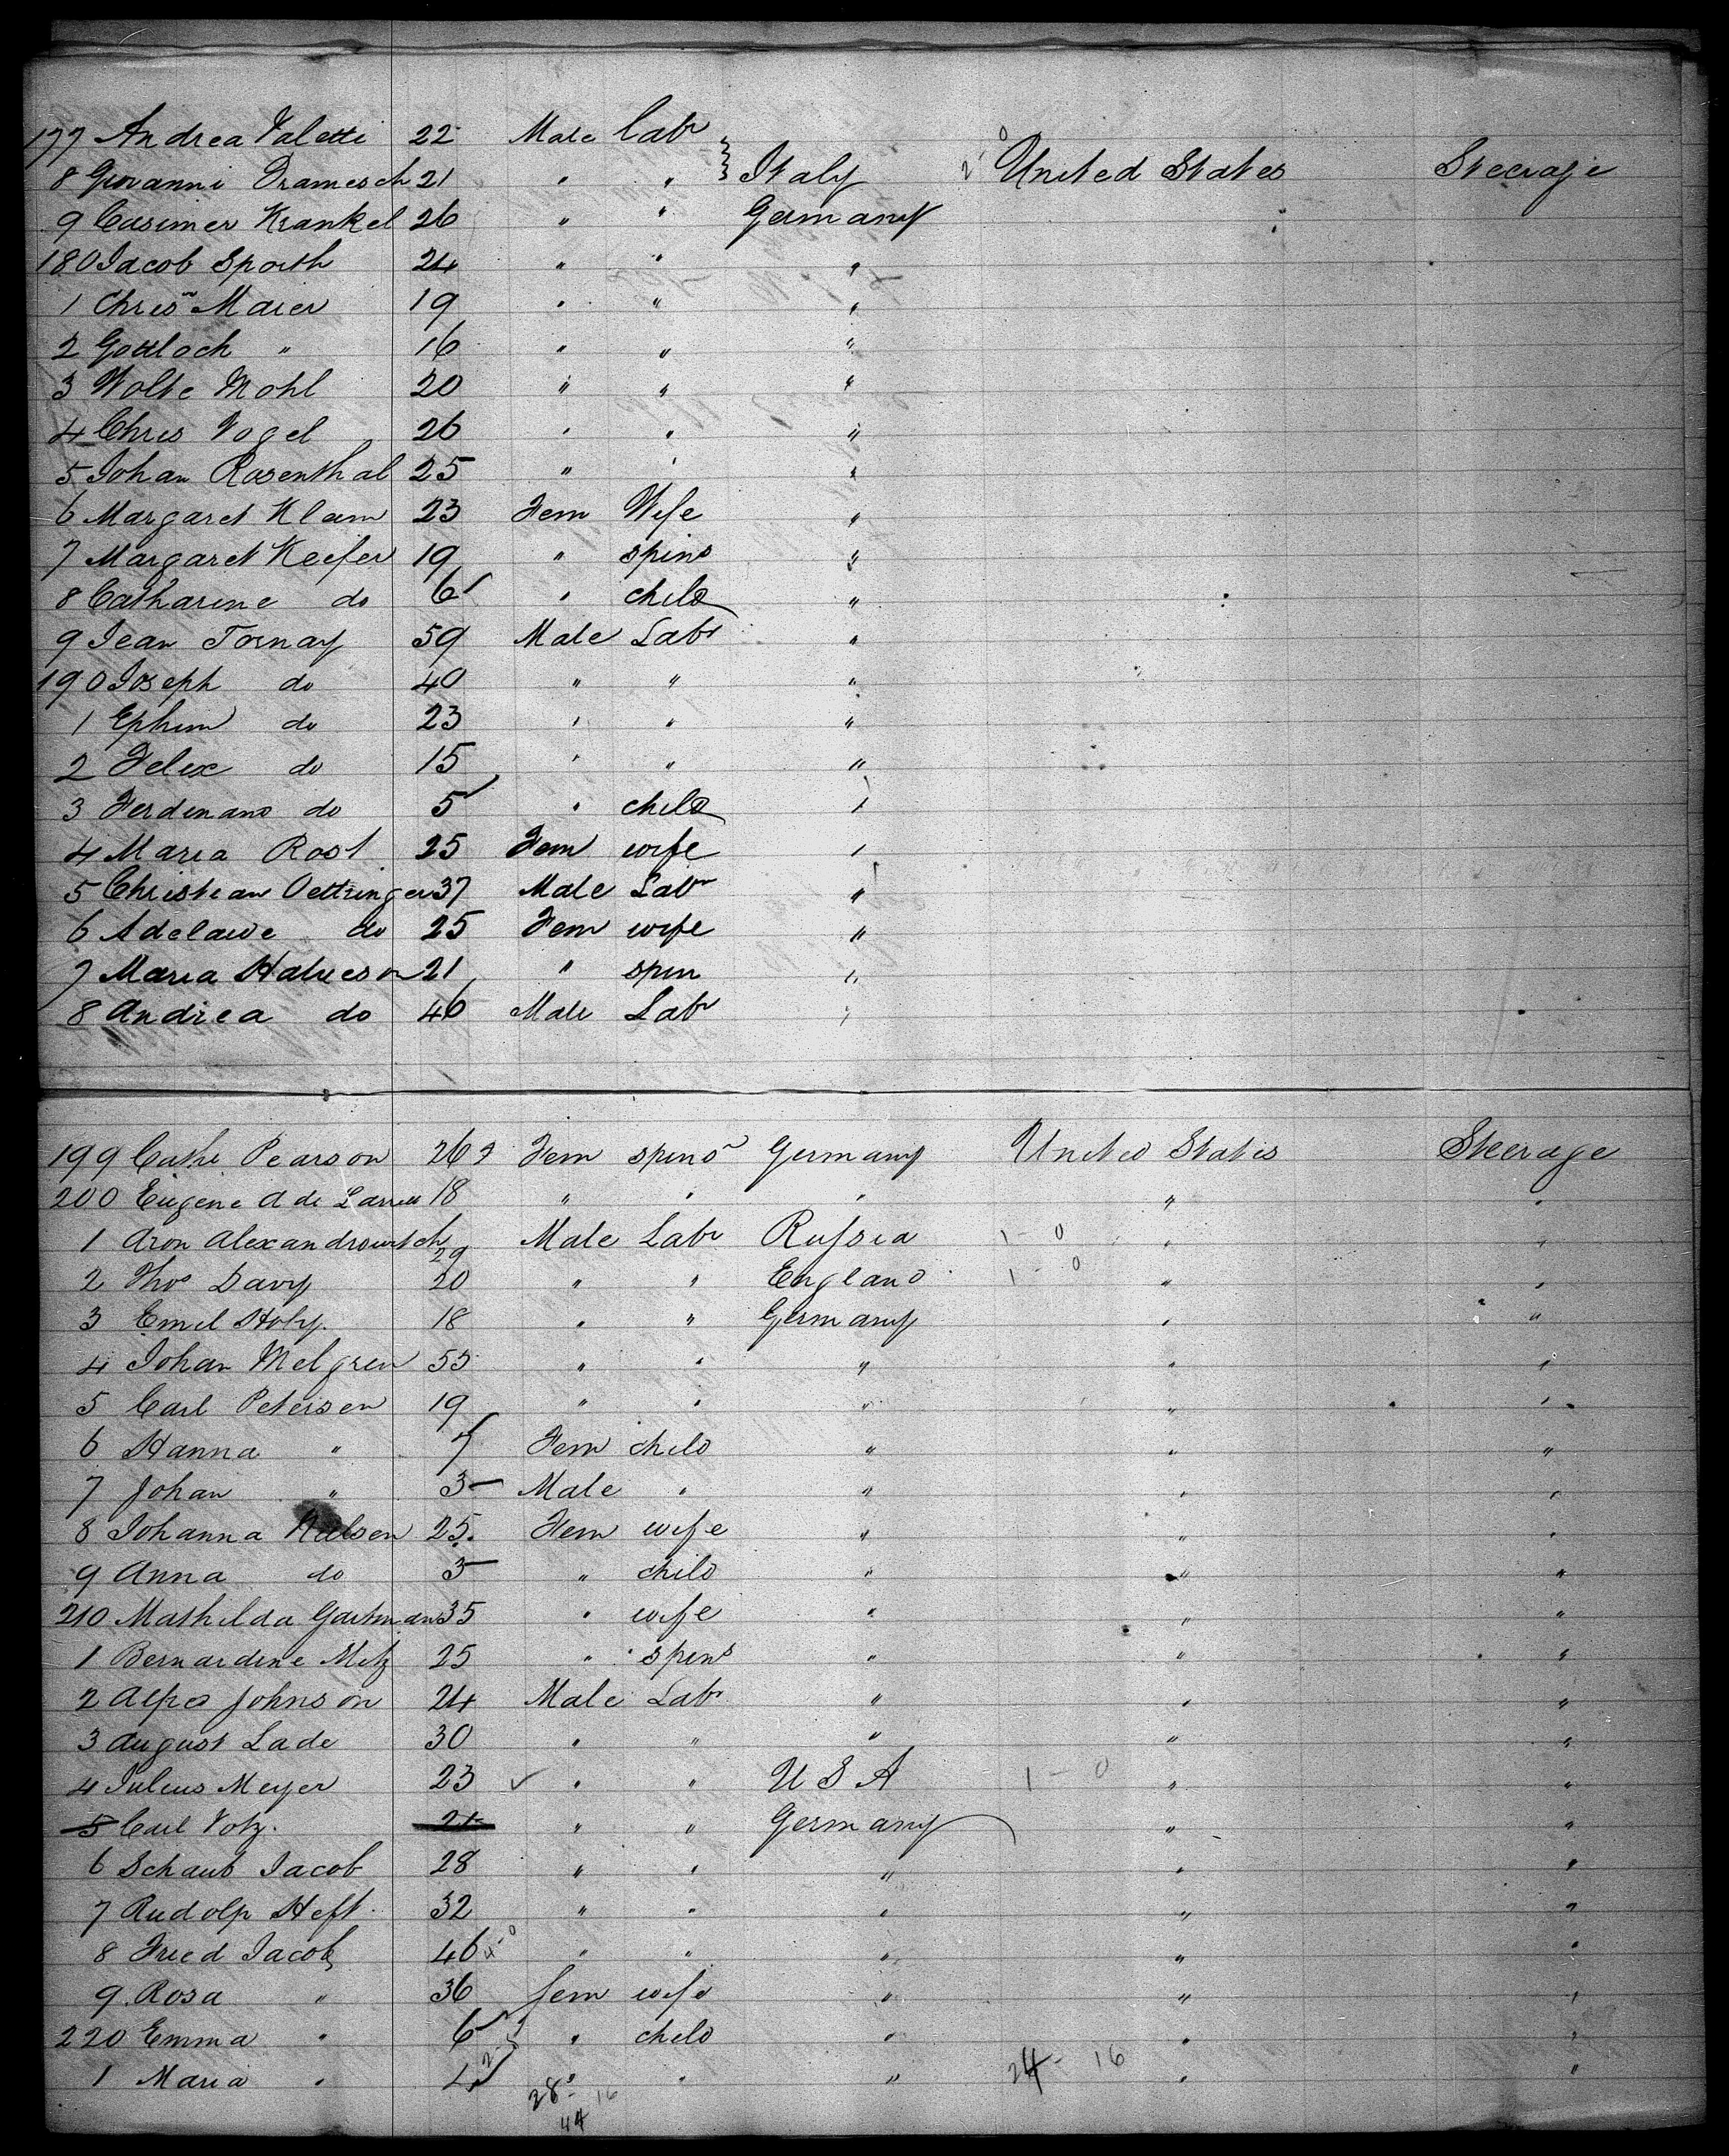 177 Andrea Valetti 22 Male Labr
8 Giovanni Dramesch 21 " " } Italy 2-0 United States Steerage
9 Casimer Krankel 26 " " Germany
180 Jacob Spoith 24 " " "
1 Chrisn Maier 19 " " "
2 Gottloch " 16 " " "
3 Wolte Mohl 20 " " "
4 Chris Vogel 26 " " "
5 Johan Rosenthal 25 " " "
6 Margaret Klam 23 Fem Wife "
7 Margaret Keefer 19 " spins "
8 Catharine do 6 " child "
9 Jean Tornay 59 Male Labr "
190 Joseph do 40 " " "
1 Ephim do 23 " " "
2 Felix do 15 " " "
3 Ferdinand do 5 " child "
4 Maria Rost 25 Fem wife "
5 Christian Oettinger 37 Male Labr "
6 Adelaide do 25 Fem wife "
7 Maria Halveson 21 " spin "
8 Andrea do 46 Male Labr "
199 Cathe Pearson 26 Fem spins Germany United States Steerage
200 Eugene A de 18 " " " " "
1 Aron Alexandrowitch 29 Male Labr Russia 1-0 " "
2 Thos Davy 20 " " England 1-0 " "
3 Emil Holy. 18 " " Germany " "
4 Johan Melgren 55 " " " " "
5 Carl Petersen 19 " " " " "
6 Hanna " 7 Fem child " " "
7 Johan " 3 Male " " " "
8 Johanna Nielsen 25. Fem wife " " "
9 Anna do 3 " child " " "
210 Mathilda Gartman 35 " wife " " "
1 Bernardine Metz 25 " spins " " "
2 Alfred Johnson 24 Male Labr " " "
3 August Lade 30 " " " " "
4 Julius Meyer 23 ✓ " " U S A 1-0 " "
5 Carl Votz. 21 " " Germany " "
6 Schaub Jacob 28 " " " " "
7 Rudolp Heft. 32 " " " " "
8 Fried Jacob 46 " " " " "
9 Rosa " 36 fem wife " " "
220 Emma " 6 " child " " "
1 Maria " " " " 24-16 " "
28-16
44